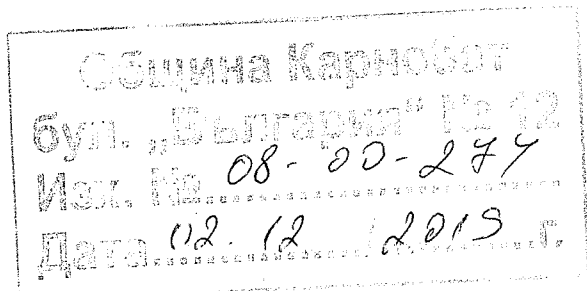 Община Карнобат
бул. „България“ № 12
Изх. № 08-00-274
Дата 02.12 / 2019 г.